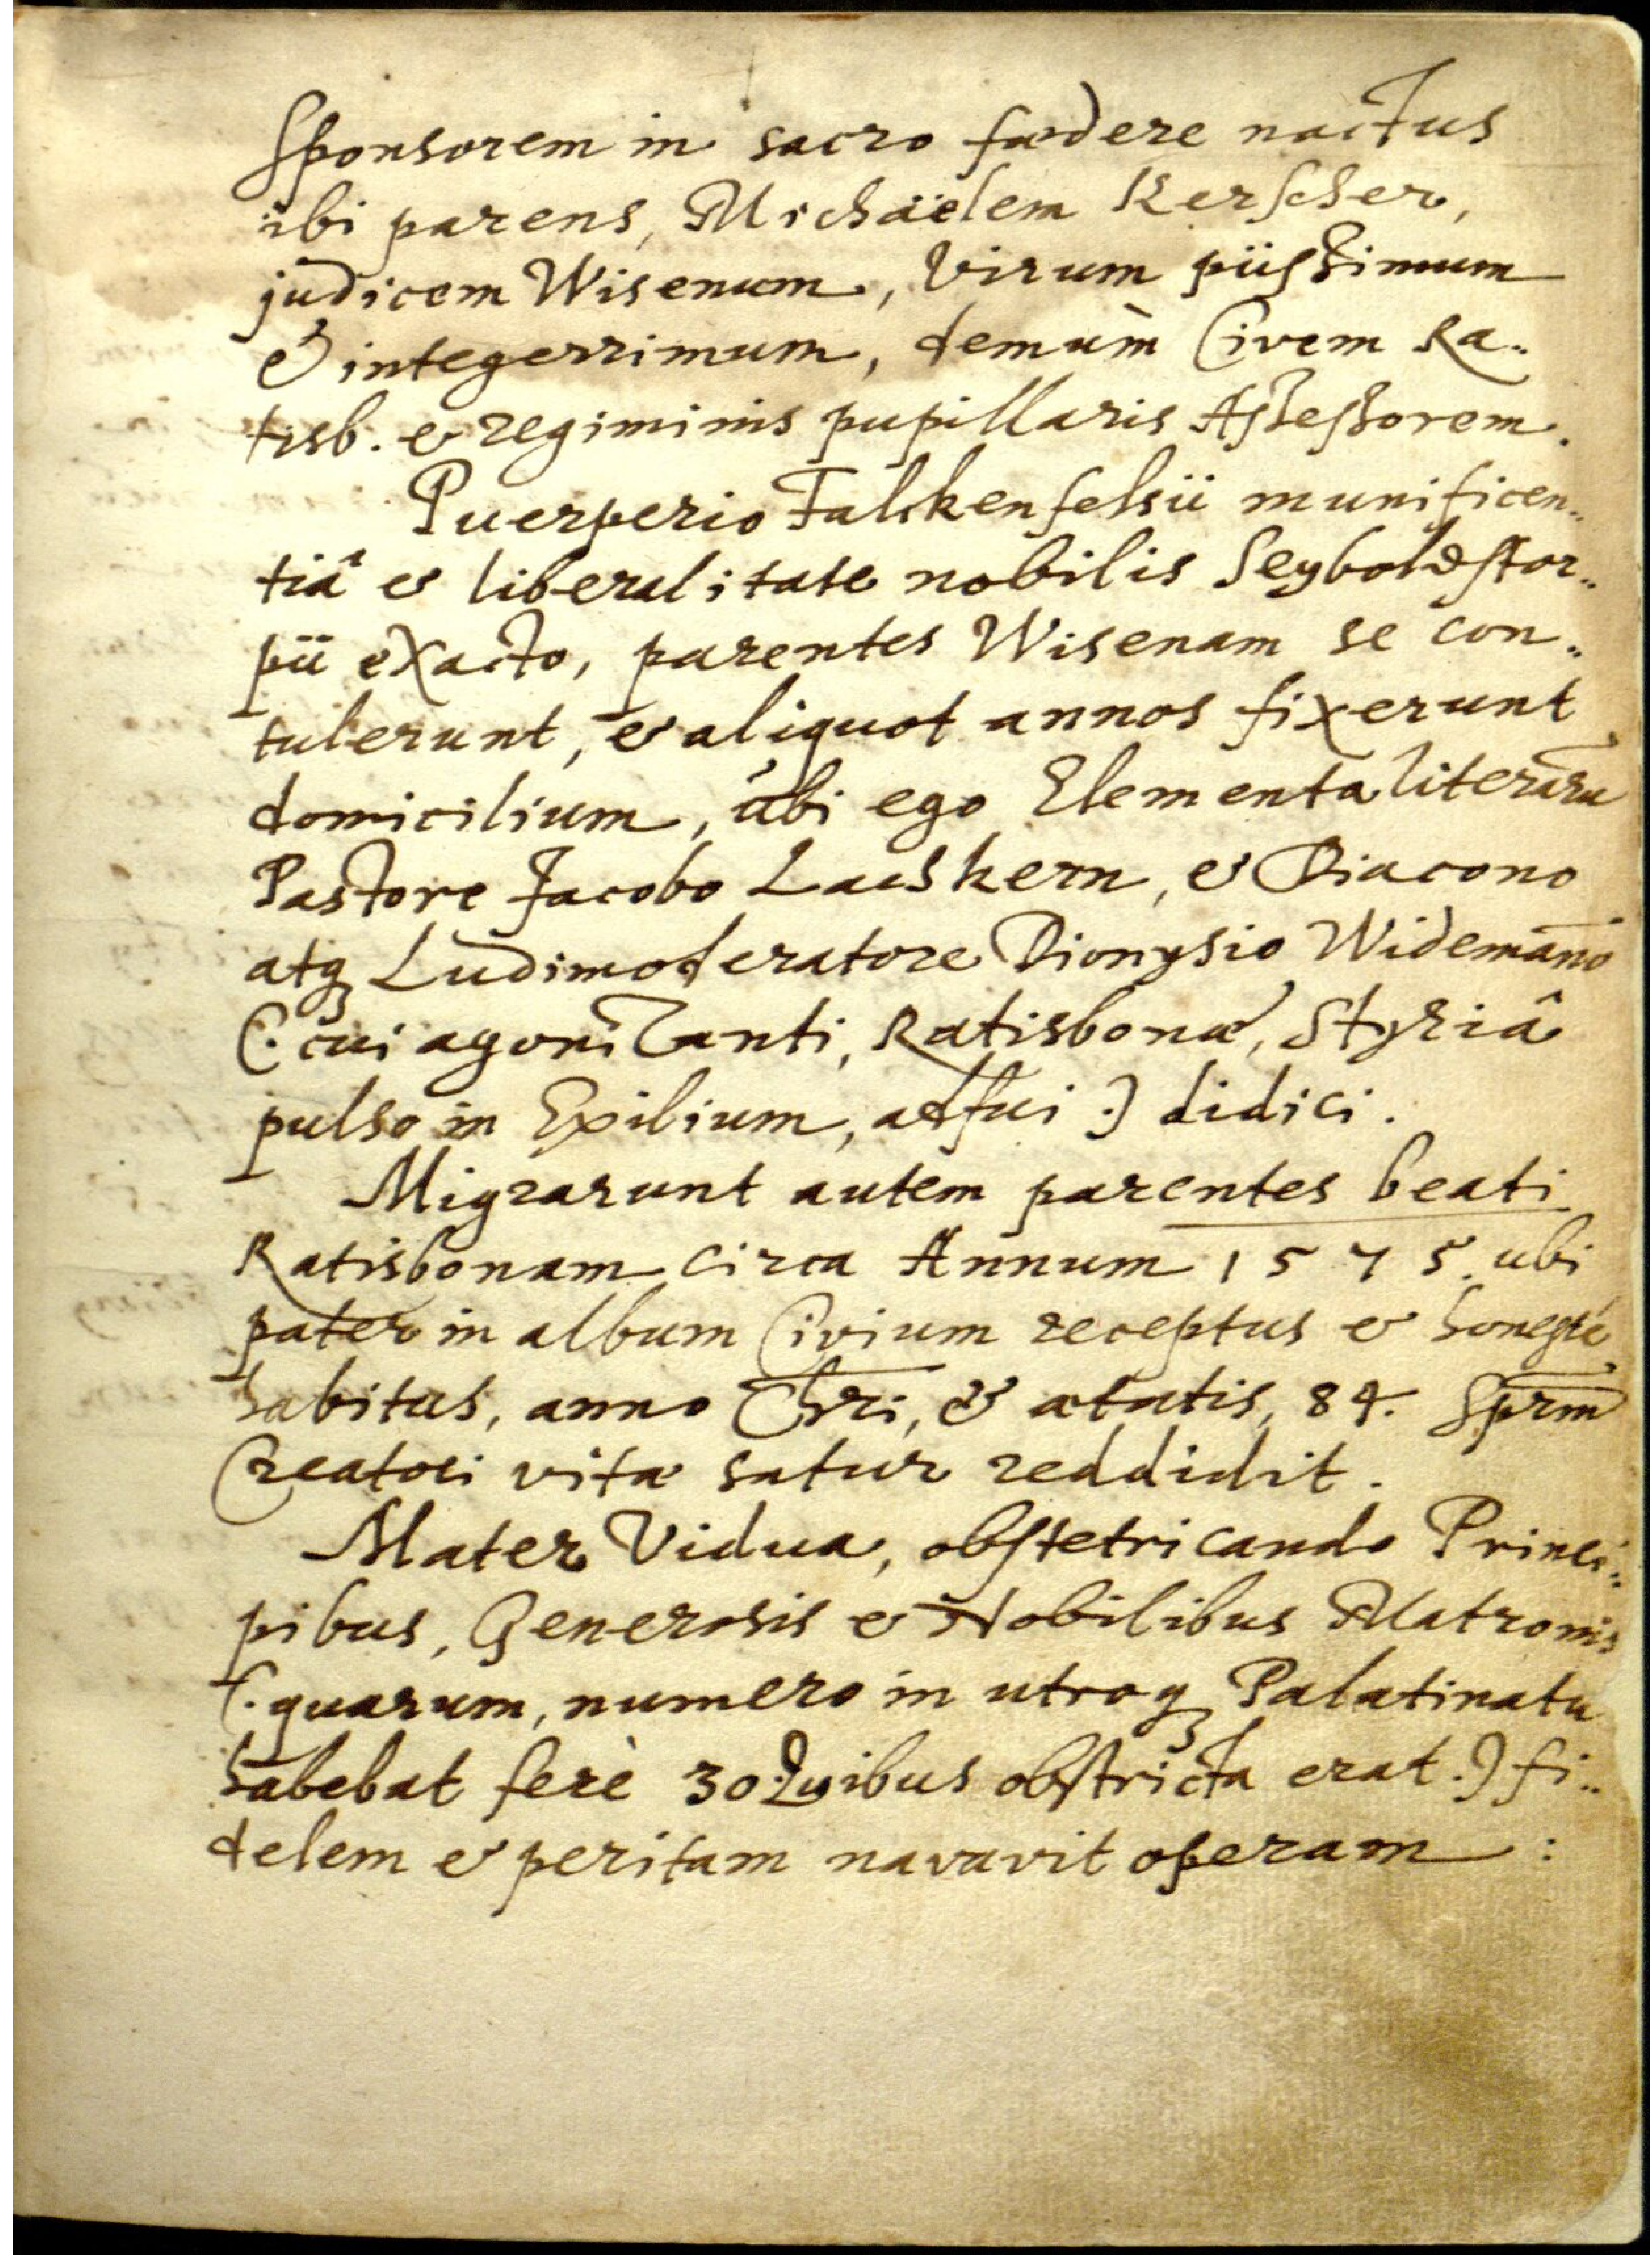 Sponsorem in sacro fœdere nactus
ibi parens, Michaëlem Kerscher,
judicem Wisenum, Virum piissimum
& integerrimum, demum̀ Civem Ra¨
tisb. & regiminis pupillaris Assessorem.
Puerperio Falckenfelsii munificen¨
tiâ & liberalitate nobilis Seyboldstor¨
pii exacto, parentes Wisenam se con¨
tulerunt, & aliquot annos fixerunt
domicilium, ubi ego Elementa literarũ
Pastore Jacobo & Diacono
atq Ludimoderatore Dionysio Widemañō
(: cui agonizanti, Ratisbonæ, Styriâ
pulso in Exilium, adfui :) didici.
Migrarunt autem parentes beati
Ratisbonam circa Annum 1575. ubi
pater in album Civium receptus & honestè
habitus, anno Chri, & ætatis, 84. Sprm
Creatori vitæ satur reddidit.
Mater Vidua, obstetricando Princi¨
pibus, Generosis & Nobilibus Matronis
(: quarum, numero in utroq Palatinatu
habebat ferè 30. Quibus obstricta erat :) fi¨
delem & peritam navavit operam :